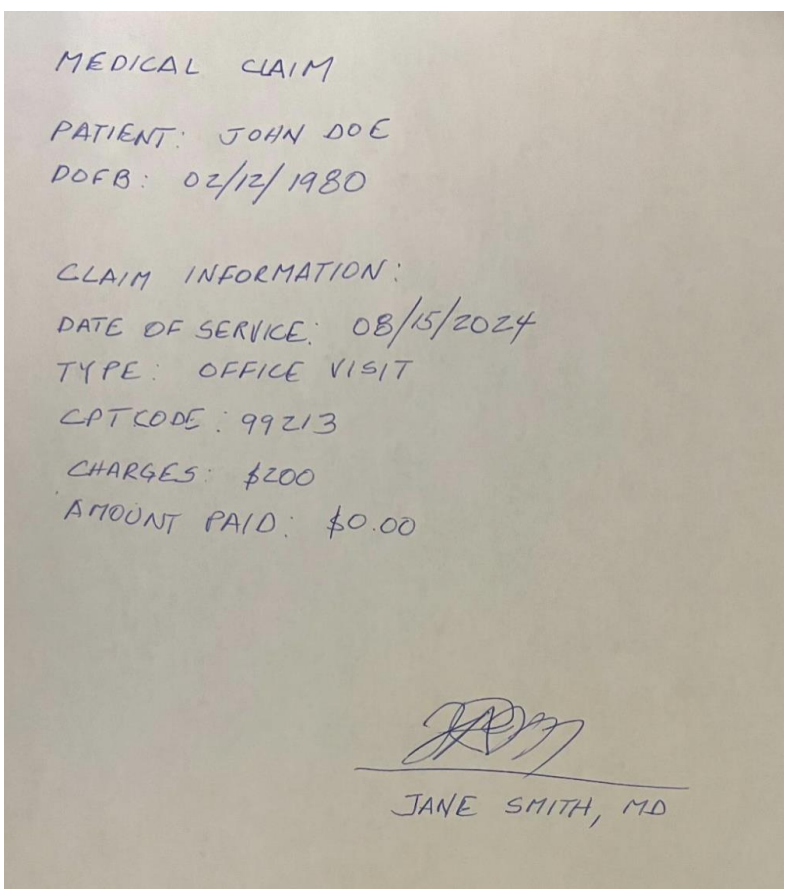 MEDICAL CLAIM
PATIENT: JOHN DOE
DOFB: 02/12/1980
CLAIM INFORMATION:
DATE OF SERVICE: 08/15/2024
TYPE: OFFICE VISIT
CPT CODE: 99213
CHARGES: $200
AMOUNT PAID: $0.00
JANE SMITH, MD